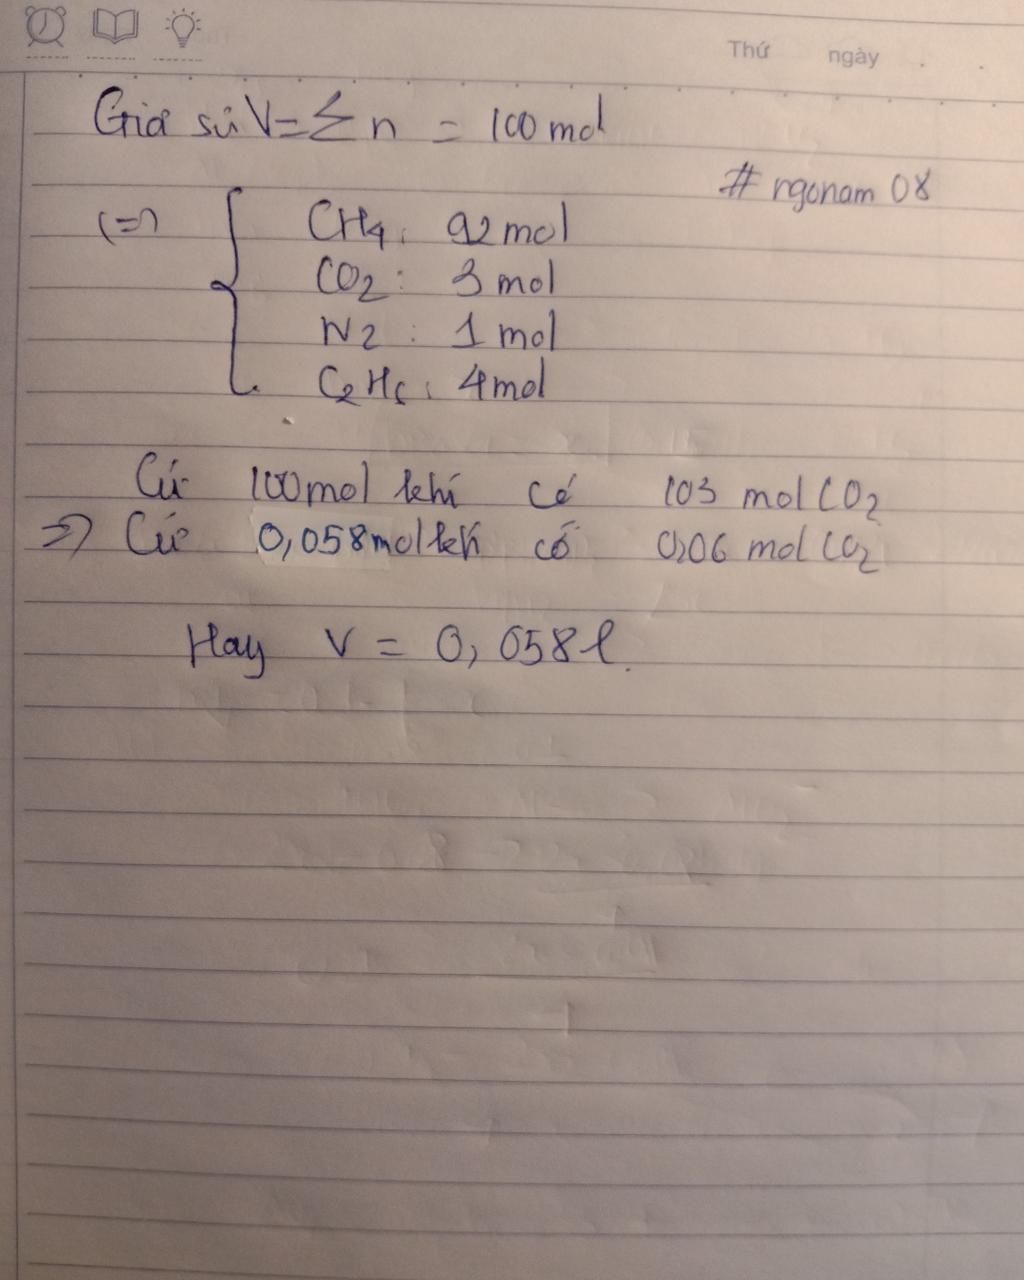 Thứ ngày
Giả sử V = Σ n = 100 mol
# ngonam 08
(=) { CH4: 92 mol
CO2: 3 mol
N2: 1 mol
C2H6: 4 mol
Cứ 100 mol khí có 103 mol CO2
=> Cứ 0,058 mol khí có 0,06 mol CO2
Hay V = 0,058 l.